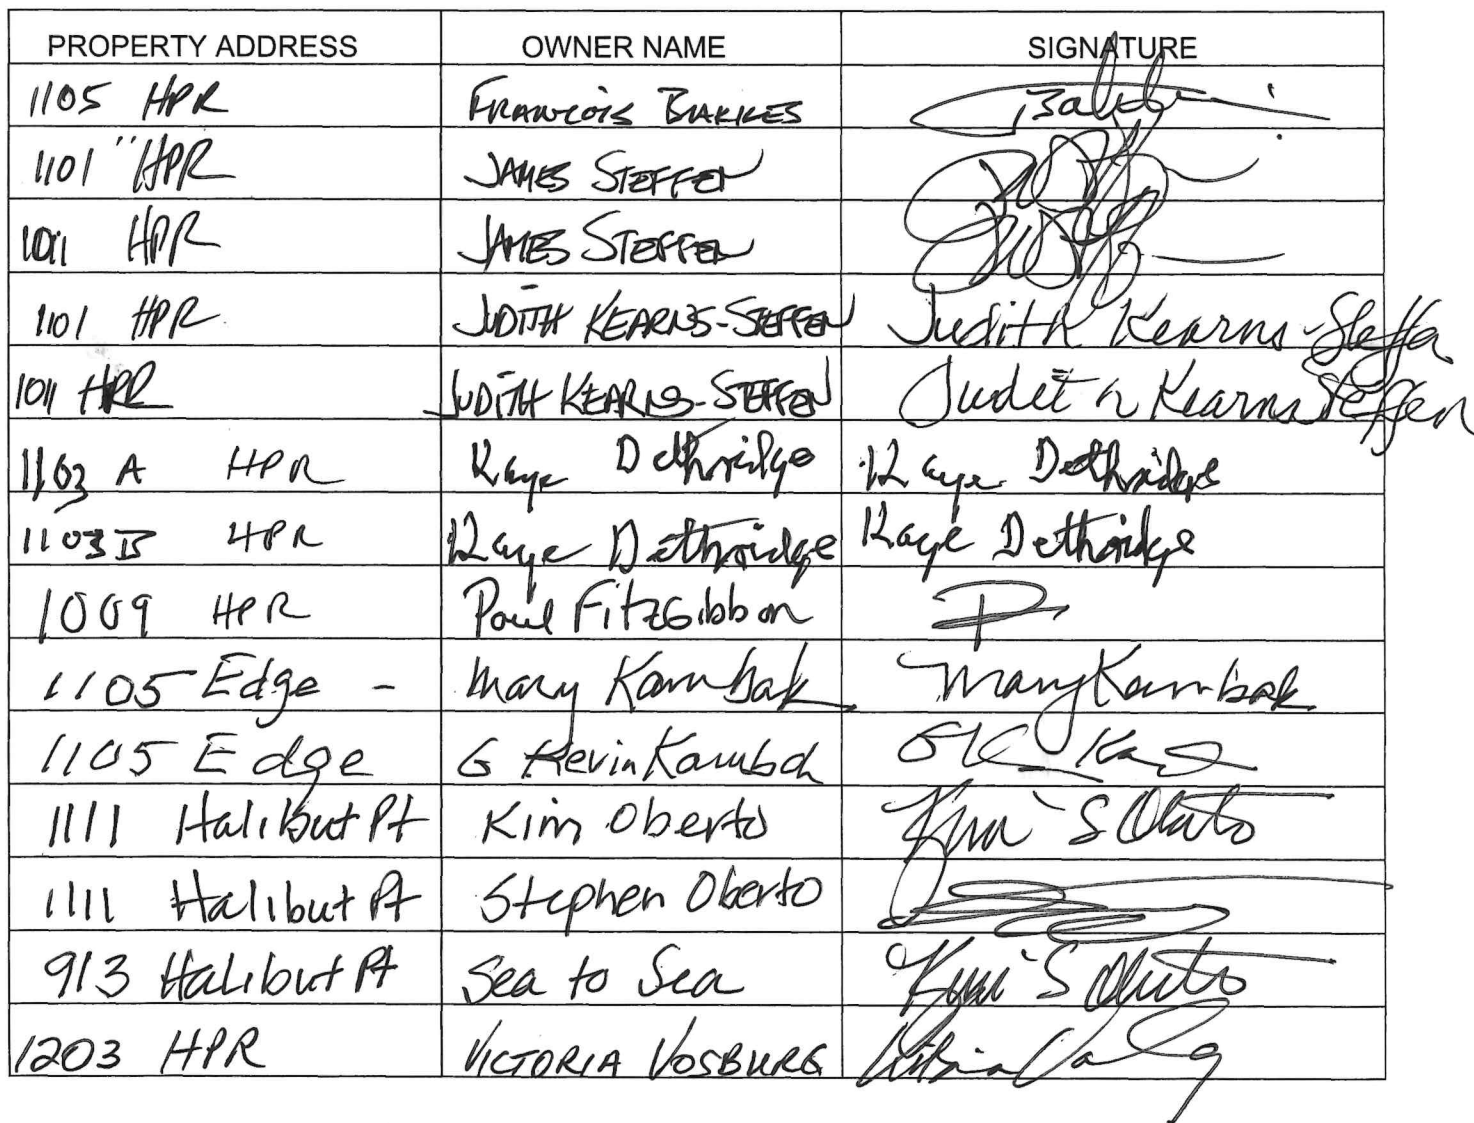 PROPERTY ADDRESS OWNER NAME SIGNATURE
1105 HPR FRANCOIS BAKKES
1101 HPR JAMES STEFFEN
1011 HPR JAMES STEFFEN
1101 HPR JUDITH KEARNS-STEFFEN Judith Kearns-Steffen
1011 HPR JUDITH KEARNS-STEFFEN Judith Kearns Steffen
1103 A HPR Kaye Dethridge Kaye Dethridge
1103 B HPR Kaye Dethridge Kaye Dethridge
1009 HPR Paul FitzGibbon
1105 Edge - Mary Kambak Mary Kambak
1105 Edge G Kevin
1111 Halibut Pt Kim Oberto Kim S Oberto
1111 Halibut Pt Stephen Oberto
913 Halibut Pt Sea to Sea Kim S Oberto
1203 HPR VICTORIA VOSBURG